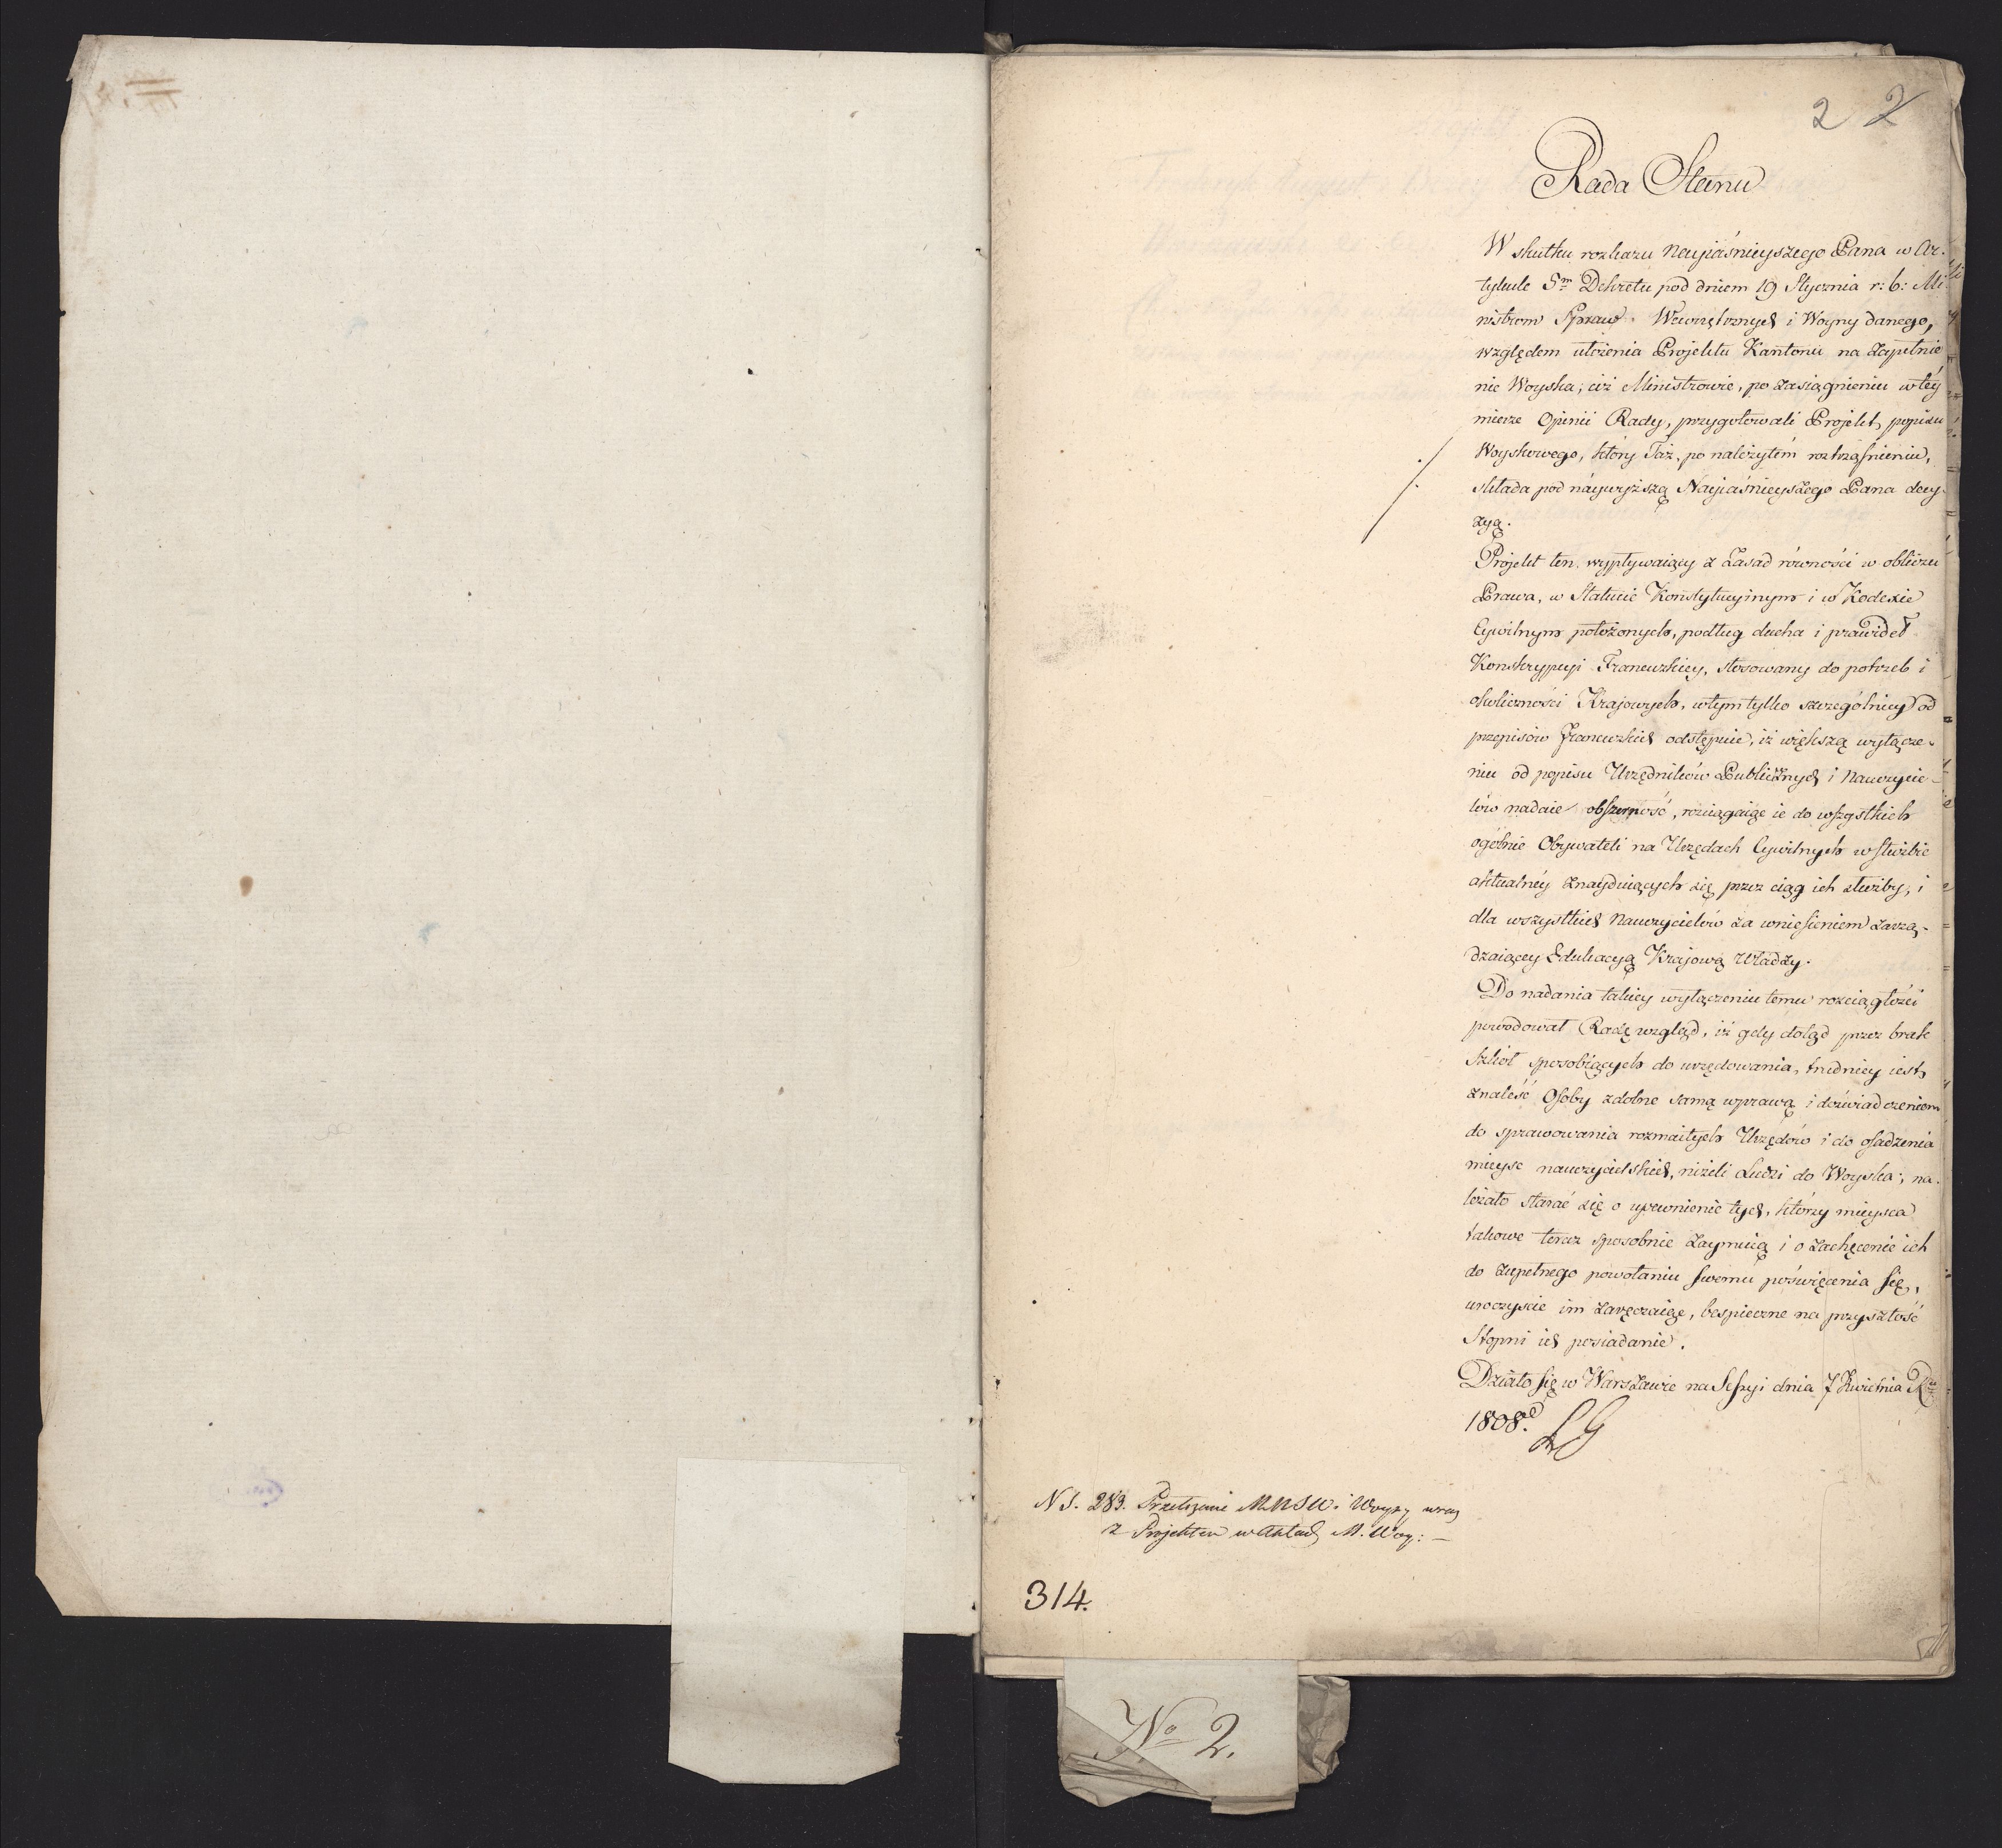 2 2
Rada Stanu
W skutku rozkazu Nayjaśnieyszego Pana w Ar-
tykule 5m Dekretu pod dniem 19 Stycznia r: b: Mi
nistrom Spraw Wewnętrznych i Woyny danego,
względem ułożenia Projektu Kantonu na Zapełnie
nie Woyska; ciż Ministrowie, po zasiągnieniu w tey
mierze Opinii Rady, przygotowali Projekt popisu
Woyskowego, który Taż, po należytém roztrząśnieniu,
składa pod naywyższą Nayiaśnieyszego Pana decy-
zyą.
Projekt ten, wypływaiący z Zasad równości w obliczu
Prawa, w Statucie Konstytucyinym i w Kodexie
Cywilnym położonych, podług ducha i prawideł
Konskrypcyi Francuzkiey, stosowany do potrzeb i
okoliczności Krajowych, w tym tylko szczególniey od
przepisów francuzkich odstępuie, iż większą wyłącze-
niu od popisu Urzędników Publicznych i Nauczycie-
lów nadaie obszerność, rozciągaiąc ie do wszystkich
ogólnie Obywateli na Urzędach Cywilnych w służbie
aktualnéy znayduiących się przez ciąg ich służby, i
dla wszystkich Nauczycielów za wniesieniem zarzą-
dzaiącey Edukacyą Krajową Władzy.
Do nadania takiey wyłączeniu temu rozciągłości
powodował Radę wzgląd, iż gdy dotąd przez brak
Szkół sposobiących do urzędowania, trudniey iest
znaleść Osoby zdolne samą wprawą i doświadczeniem
do sprawowania rozmaitych Urzędów i do osadzenia
mieysc nauczycielskich, niżeli Ludzi do Woyska; na-
leżało starać się o upewnienie tych, którzy mieysca
takowe teraz sposobnie zaymuią i o zachęcenie ich
do zupełnego powołaniu swemu poświęcenia się,
uroczyście im zaręczaiąc, bespieczne na przyszłość
Stopni ich posiadanie.
Działo się w Warszawie na Sessyi dnia 7 Kwietnia Rku
1808. LG
N S. 283. Przełożenie M. N S W. i Woyny wraz
z Projektem w Aktach M. Woy: —
314.
No 2.